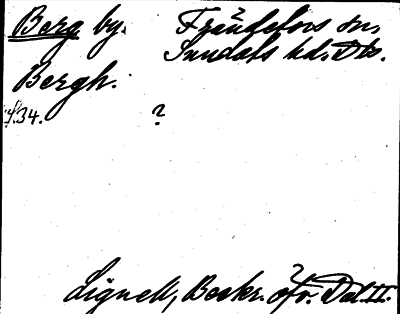 Berg by. Frändefors sn,
Sundals hd. Dls.
Bergh.
S.34. ?
Lignell, Beskr. öfv. Dal. II.